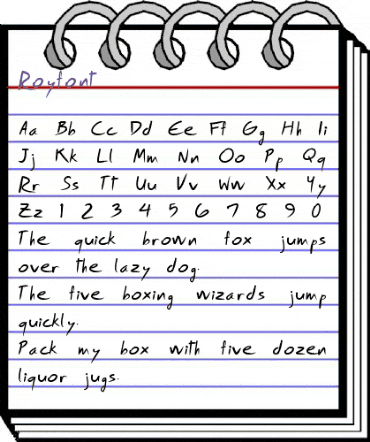 Royfont
Aa Bb Cc Dd Ee Ff Gg Hh Ii
Jj Kk Ll Mm Nn Oo Pp Qq
Rr Ss Tt Uu Vv Ww Xx Yy
Zz 1 2 3 4 5 6 7 8 9 0
The quick brown fox jumps
over the lazy dog.
The five boxing wizards jump
quickly.
Pack my box with five dozen
liquor jugs.